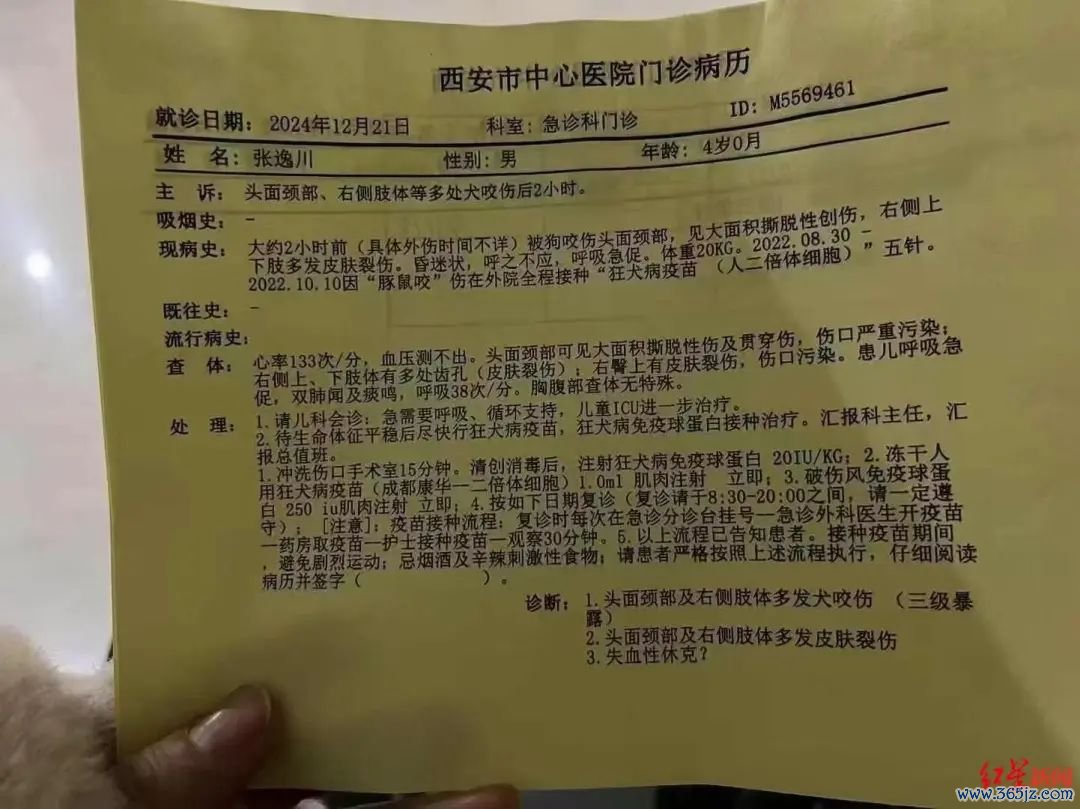 西安市中心医院门诊病历
就诊日期：2024年12月21日 科室：急诊科门诊 ID：M5569461
姓 名：张逸川 性别：男 年龄：4岁0月
主 诉：头面颈部、右侧肢体等多处犬咬伤后2小时。
吸烟史：-
现病史：大约2小时前（具体外伤时间不详）被狗咬伤头面颈部，见大面积撕脱性创伤，右侧上
下肢多发皮肤裂伤。昏迷状，呼之不应，呼吸急促。体重20KG。2022.08.30 -
2022.10.10因“豚鼠咬”伤在外院全程接种“狂犬病疫苗 （人二倍体细胞）”五针。
既往史：-
流行病史：
查 体：心率133次/分，血压测不出。头面颈部可见大面积撕脱性伤及贯穿伤，伤口严重污染；
右侧上、下肢体有多处齿孔（皮肤裂伤）；右臀上有皮肤裂伤，伤口污染。患儿呼吸急
促，双肺闻及痰鸣，呼吸38次/分。胸腹部查体无特殊。
处 理：1.请儿科会诊：急需要呼吸、循环支持，儿童ICU进一步治疗。
2.待生命体征平稳后尽快行狂犬病疫苗，狂犬病免疫球蛋白接种治疗。汇报科主任，汇
报总值班。
1.冲洗伤口手术室15分钟。清创消毒后，注射狂犬病免疫球蛋白 20IU/KG；2.冻干人
用狂犬病疫苗（成都康华一二倍体细胞）1.0ml 肌肉注射 立即；3.破伤风免疫球蛋
白 250 iu肌肉注射 立即；4.按如下日期复诊（复诊请于8:30-20:00之间，请一定遵
守）；[注意]：疫苗接种流程：复诊时每次在急诊分诊台挂号一急诊外科医生开疫苗
一药房取疫苗一护士接种疫苗一观察30分钟。5.以上流程已告知患者。接种疫苗期间
，避免剧烈运动；忌烟酒及辛辣刺激性食物；请患者严格按照上述流程执行，仔细阅读
病历并签字（ ）。
诊断：1.头面颈部及右侧肢体多发犬咬伤 （三级暴
露）
2.头面颈部及右侧肢体多发皮肤裂伤
3.失血性休克？
红星新闻
www.365jz.com